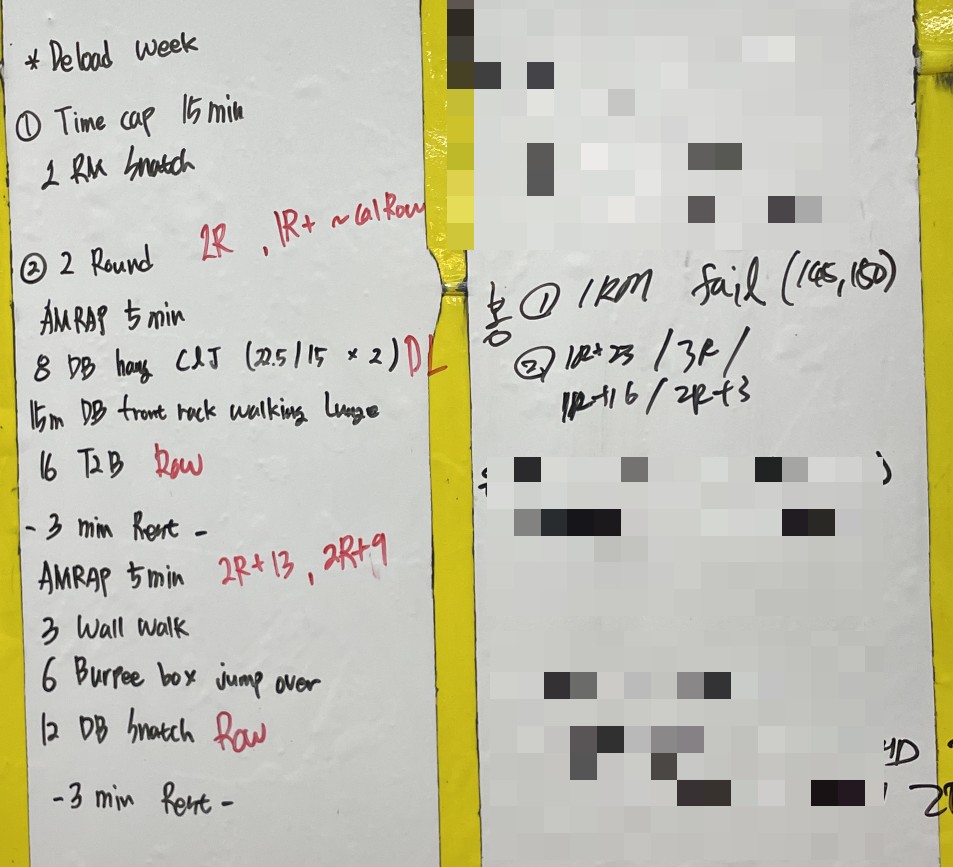 * Deload week
① Time cap 15 min
1 RM Snatch
② 2 Round 2R , 1R+ ~ cal Row
AMRAP 5 min
8 DB hang C&J (22.5/15 * 2) DL
15m DB front rack walking Lunge
16 T2B Row
- 3 min Rest -
AMRAP 5 min 2R+13 , 2R+9
3 Wall walk
6 Burpee box jump over
12 DB Snatch Row
- 3 min Rest -
① 1RM fail (145, 150)
② 1R+23 / 3R /
1R+16 / 2R+3